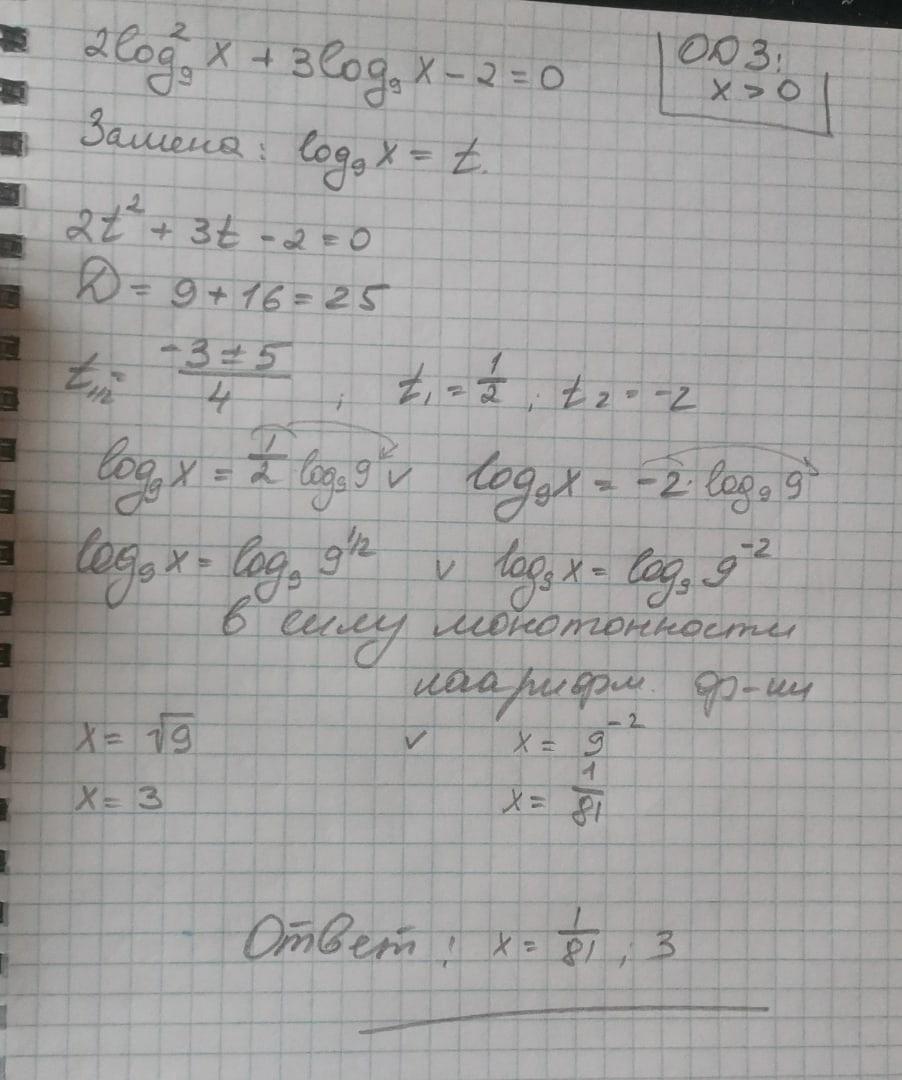 2log₉²x + 3log₉x - 2 = 0
ОДЗ:
x > 0
Замена: log₉x = t.
2t² + 3t - 2 = 0
D = 9 + 16 = 25
t₁,₂ = (-3 ± 5)/4 ; t₁ = 1/2 ; t₂ = -2
log₉x = 1/2 log₉9 ∨ log₉x = -2·log₉9
log₉x = log₉9^1/2 ∨ log₉x = log₉9⁻²
в силу монотонности
логарифм. ф-ии
x = √9 ∨ x = 9⁻²
x = 3 x = 1/81
Ответ: x = 1/81 ; 3